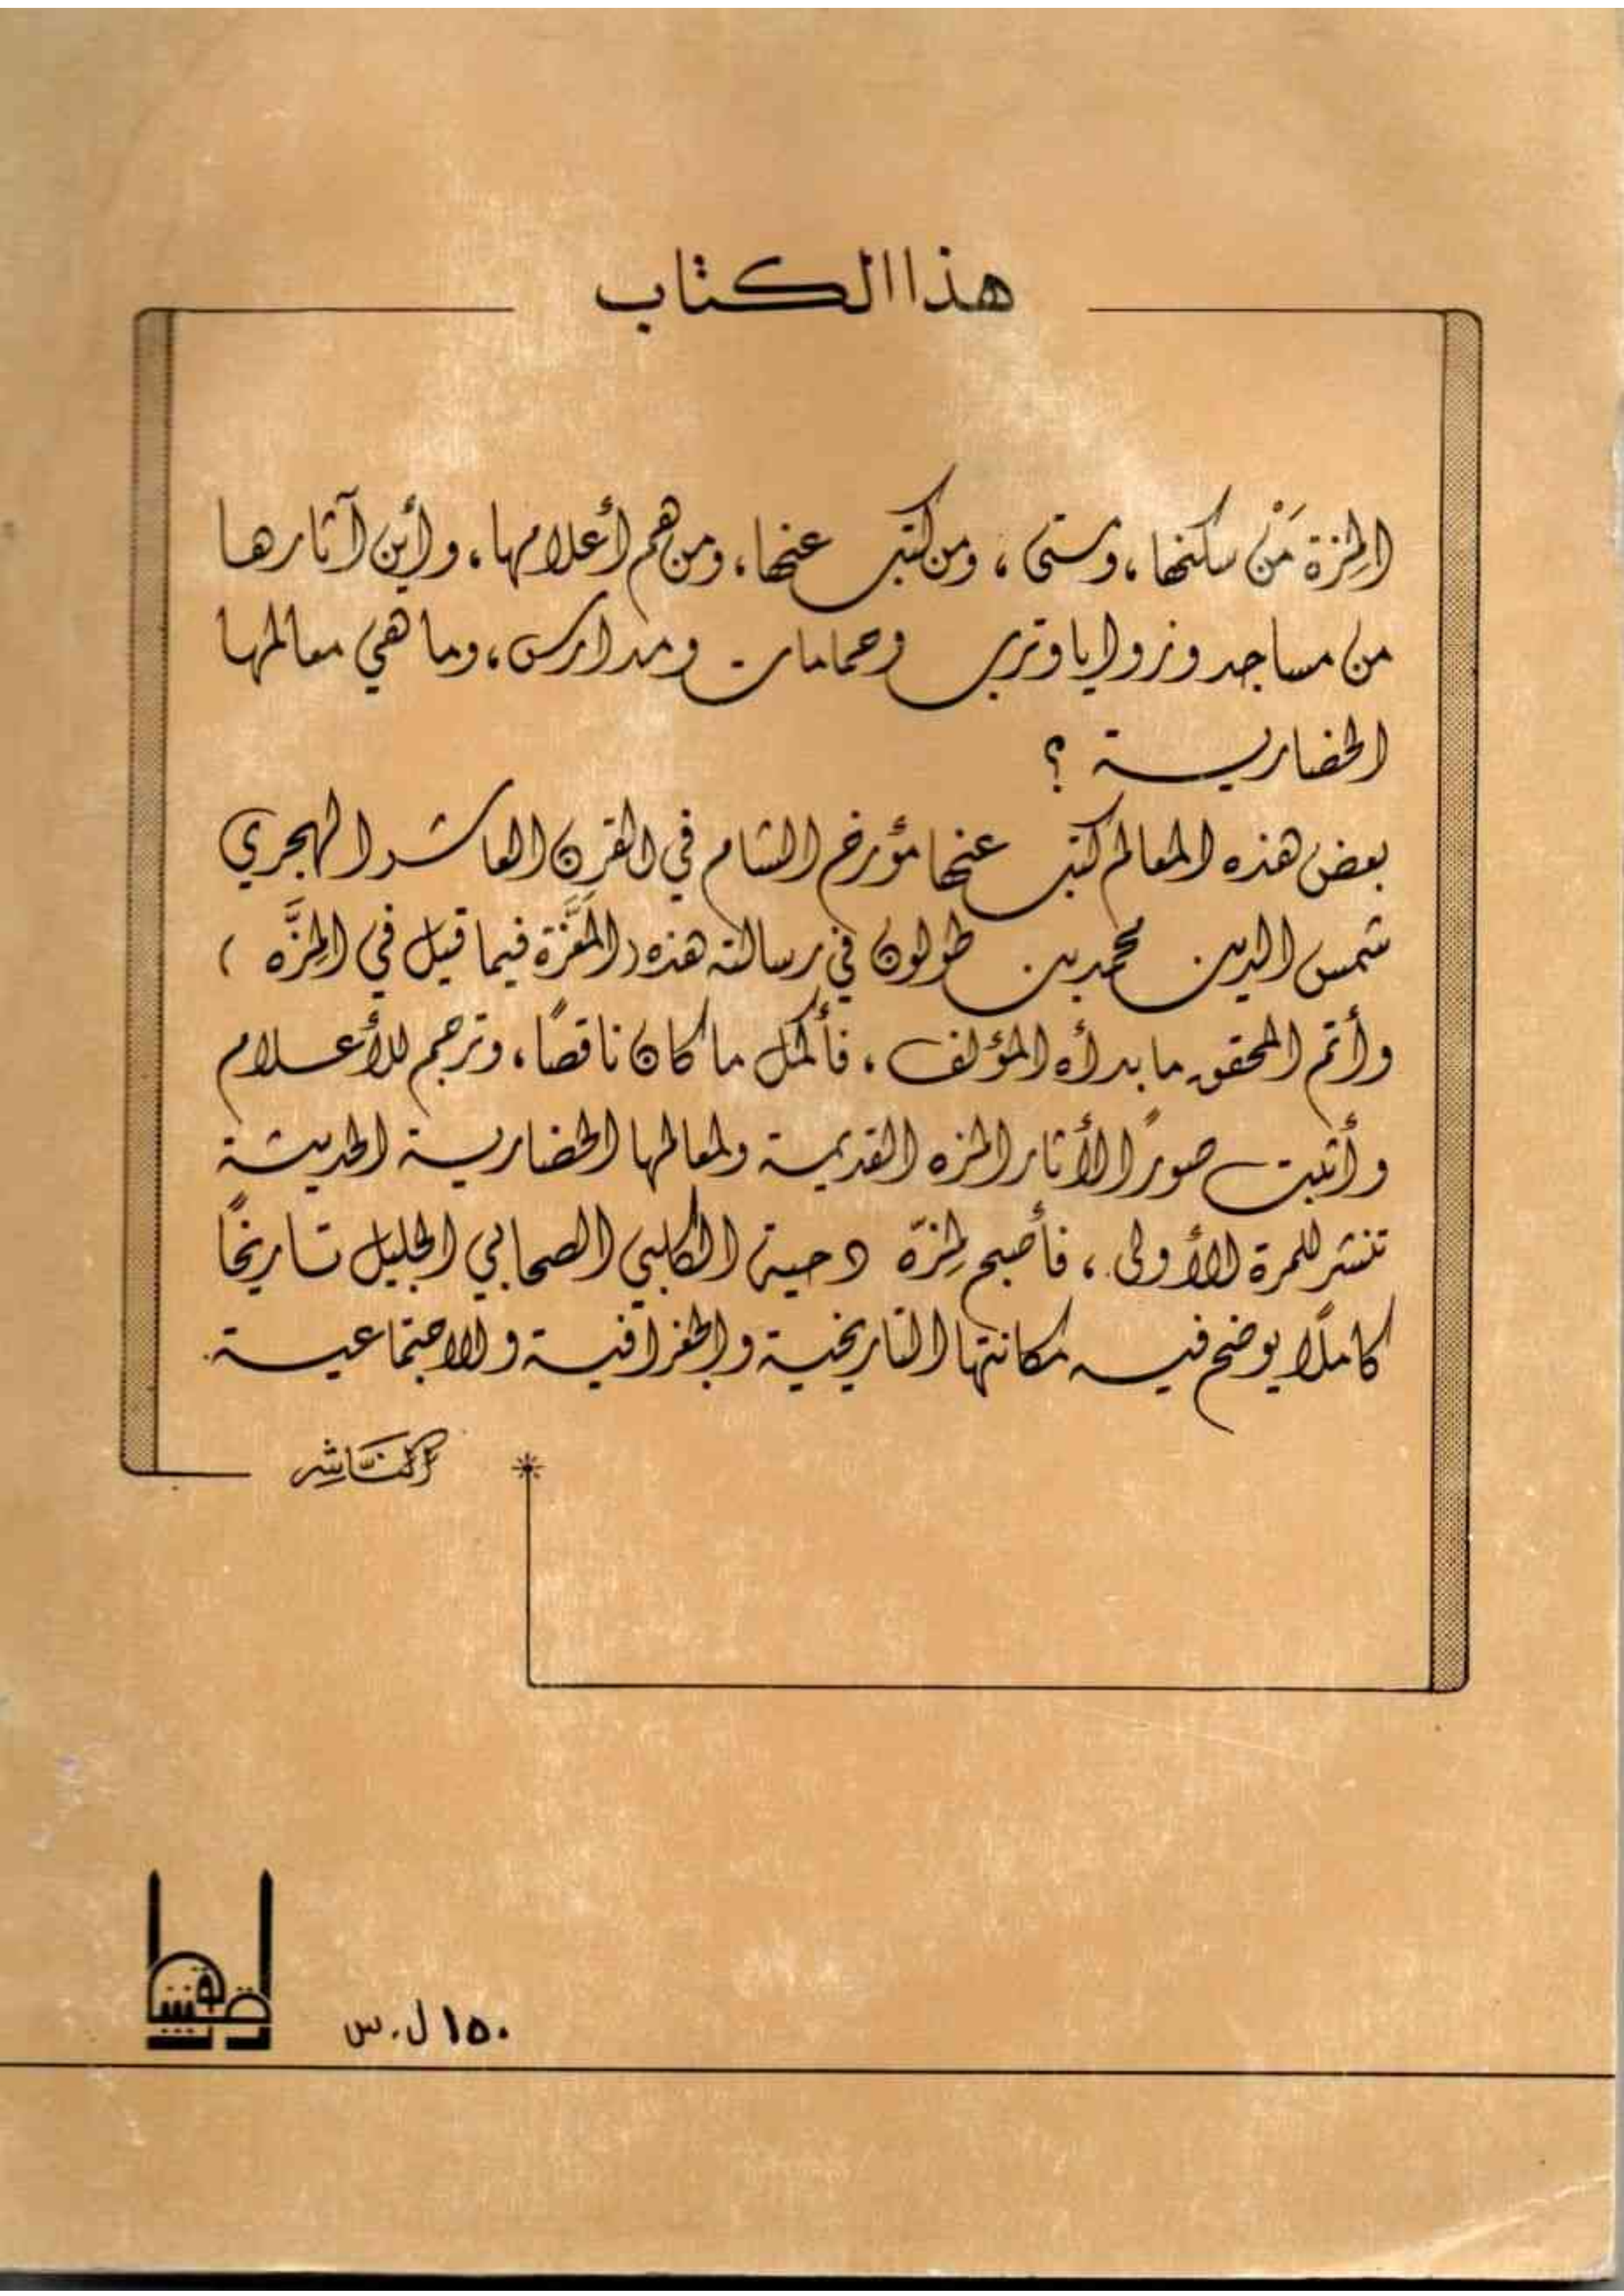 هذا الكتاب
المِزة مَنْ سكنها، ومتى، ومن كتب عنها، ومن هم أعلامها، وأين آثارها
من مساجد وزوايا وترب وحمامات ومدارس، وما هي معالمها
الحضارية ؟
بعض هذه المعالم كتب عنها مؤرخ الشام في القرن العاشر الهجري
شمس الدين محمد بن طولون في رسالته هذه (المعَزَّة فيما قيل في المِزَّه )
وأتم المحقق ما بدأه المؤلف، فأكمل ما كان ناقصًا، وترجم للأعلام
وأثبت صورًا لآثار المزه القديمة ولمعالمها الحضارية الحديثة
تنشر للمرة الأولى، فأصبح لمِزّة دحية الكلبي الصحابي الجليل تاريخًا
كاملًا يوضح فيه مكانتها التاريخية والجغرافية والاجتماعية.
النَّاشِر
١٥٠ ل.س